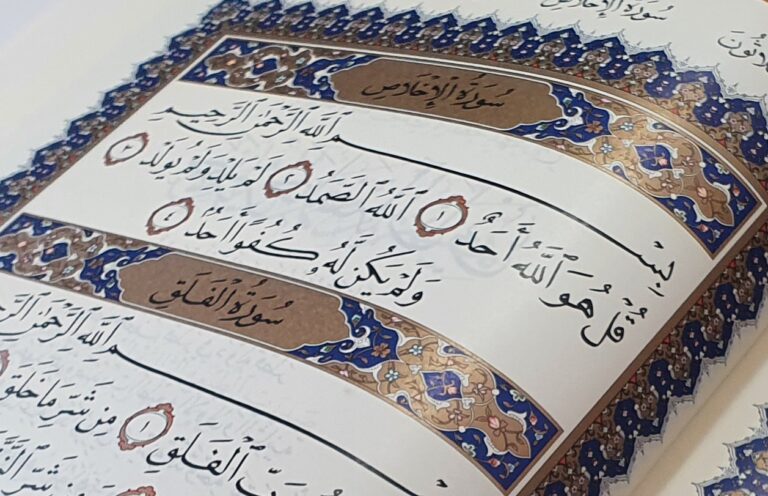 سُورَةُ الإِخْلَاصِ
سُورَةُ الإِخْلَاصِ
بِسْمِ ٱللَّهِ ٱلرَّحْمَٰنِ ٱلرَّحِيمِ
قُلْ هُوَ ٱللَّهُ أَحَدٌ ١ ٱللَّهُ ٱلصَّمَدُ ٢ لَمْ يَلِدْ وَلَمْ يُولَدْ ٣
وَلَمْ يَكُن لَّهُۥ كُفُوًا أَحَدٌۢ ٤
سُورَةُ الفَلَقِ
ٱللَّهِ ٱلرَّحْمَٰنِ
ٱلْفَلَقِ ١ مِن شَرِّ مَا خَلَقَ
شَرِّ